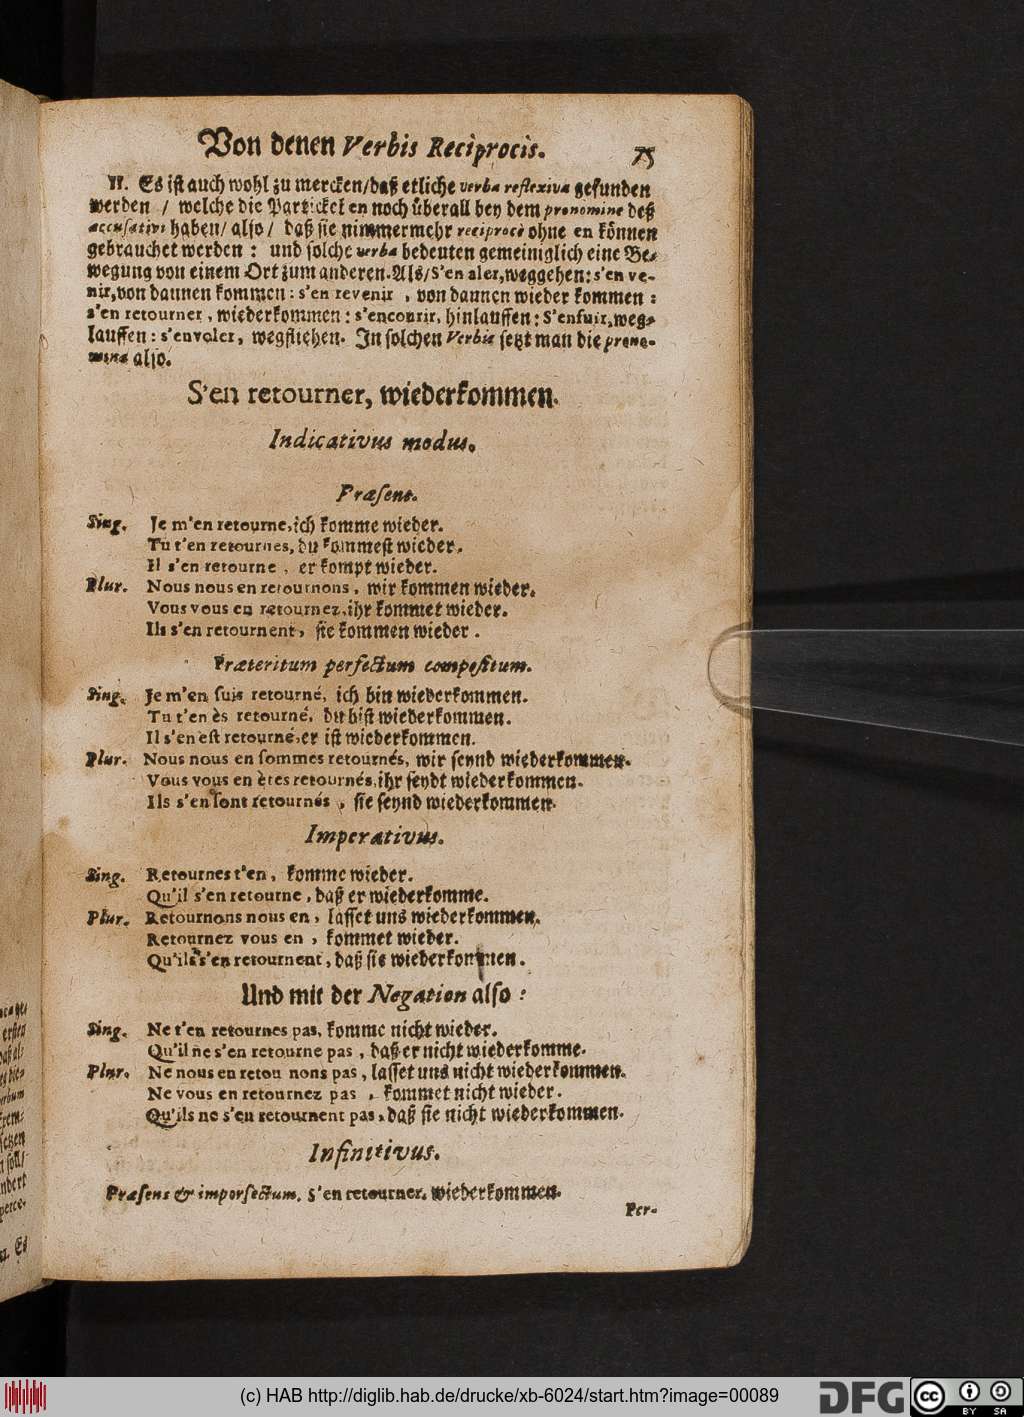 Von denen Verbis Reciprocis. 75
II. Es ist auch wohl zu mercken/daß etliche verba reflexiva gefunden
werden / welche die Partickel en noch überall bey dem pronomine deß
accusativi haben/ also / daß sie nimmermehr reciprocè ohne en können
gebrauchet werden : und solche verba bedeuten gemeiniglich eine Be-
wegung von einem Ort zum anderen. Als/S'en aler,weggehen: s'en ve-
nir,von dannen kommen : s'en revenir , von dannen wieder kommen :
s'en retourner , wiederkommen : s'encourir, hinlauffen : S'enfuir,weg-
lauffen : s'envoler, wegfliehen. In solchen Verbis setzt man die prono-
mina also.
S'en retourner, wiederkommen.
Indicativus modus.
Præsens.
Sing. Je m'en retourne, ich komme wieder.
Tu t'en retournes, du kommest wieder.
Il s'en retourne , er kompt wieder.
Plur. Nous nous en retournons , wir kommen wieder.
Vous vous en retournez, ihr kommet wieder.
Ils s'en retournent, sie kommen wieder .
Præteritum perfectum compositum.
Sing. Je m'en suis retourné, ich bin wiederkommen.
Tu t'en ès retourné, du bist wiederkommen.
Il s'en est retourné, er ist wiederkommen.
Plur. Nous nous en sommes retournés, wir seynd wiederkommen.
Vous vous en êtes retournés, ihr seydt wiederkommen.
Ils s'en sont retournés , sie seynd wiederkommen.
Imperativus.
Sing. Retournes t'en, komme wieder.
Qu'il s'en retourne , daß er wiederkomme.
Plur. Retournons nous en , lasset uns wiederkommen.
Retournez vous en , kommet wieder.
Qu'ils s'en retournent , daß sie wiederkommen .
Und mit der Negation also :
Sing. Ne t'en retournes pas, komme nicht wieder.
Qu'il ne s'en retourne pas , daß er nicht wiederkomme.
Plur. Ne nous en retou nons pas , lasset uns nicht wiederkommen.
Ne vous en retournez pas , kommet nicht wieder.
Qu'ils ne s'en retournent pas , daß sie nicht wiederkommen.
Infinitivus.
Præsens & imperfectum, s'en retourner, wiederkommen.
Per-
(c) HAB http://diglib.hab.de/drucke/xb-6024/start.htm?image=00089
DFG
cc BY SA